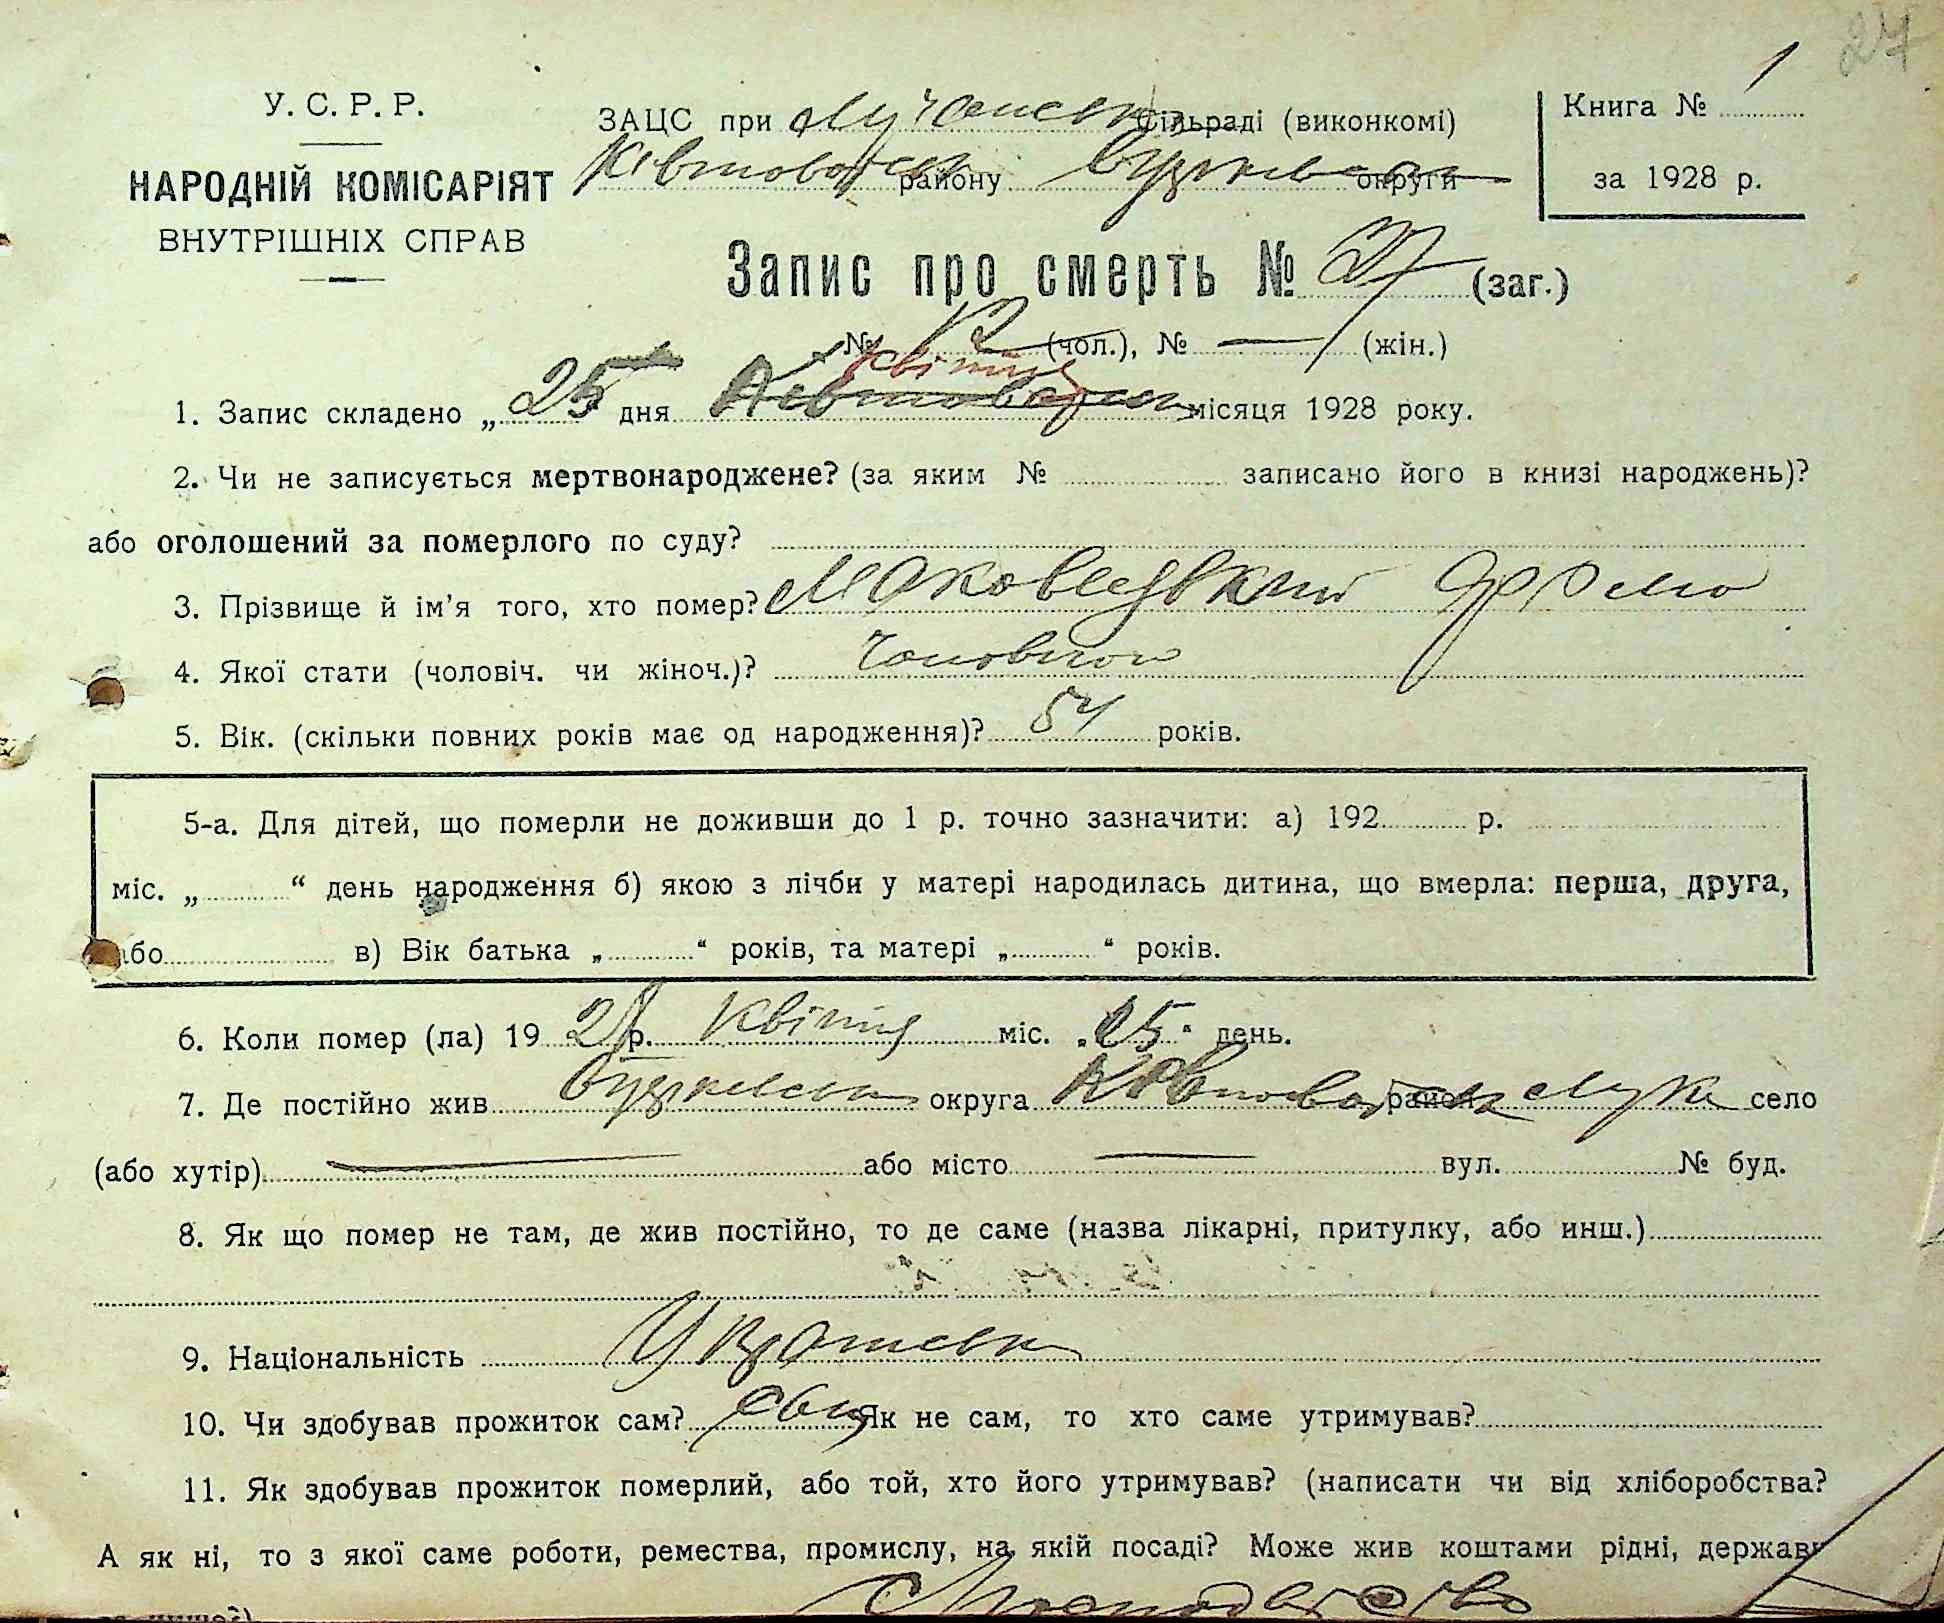 27
У. С. Р. Р.
НАРОДНІЙ КОМІСАРІЯТ
ВНУТРІШНІХ СПРАВ
ЗАЦС при Лучанськ Сільраді (виконкомі)
району округи
Книга № 1
за 1928 р.
Запис про смерть № 27 (заг.)
№ 12 (чол.), № — (жін.)
квітня
1. Запис складено „ 25 дня місяця 1928 року.
2. Чи не записується мертвонароджене? (за яким № записано його в книзі народжень)?
або оголошений за померлого по суду?
3. Прізвище й ім’я того, хто помер? Маковецький Ярема
4. Якої стати (чоловіч. чи жіноч.)?
5. Вік. (скільки повних років має од народження)? 54 років.
5-а. Для дітей, що померли не доживши до 1 р. точно зазначити: а) 192 р.
міс. „ “ день народження б) якою з лічби у матері народилась дитина, що вмерла: перша, друга,
або в) Вік батька „ “ років, та матері „ “ років.
6. Коли помер (ла) 19 28 р. квітня міс. „ 25 “ день.
7. Де постійно жив округа район Лука село
(або хутір) — або місто — вул. № буд.
8. Як що помер не там, де жив постійно, то де саме (назва лікарні, притулку, або инш.)
9. Національність
10. Чи здобував прожиток сам? Як не сам, то хто саме утримував?
11. Як здобував прожиток померлий, або той, хто його утримував? (написати чи від хліборобства?
А як ні, то з якої саме роботи, ремества, промислу, на якій посаді? Може жив коштами рідні, держави